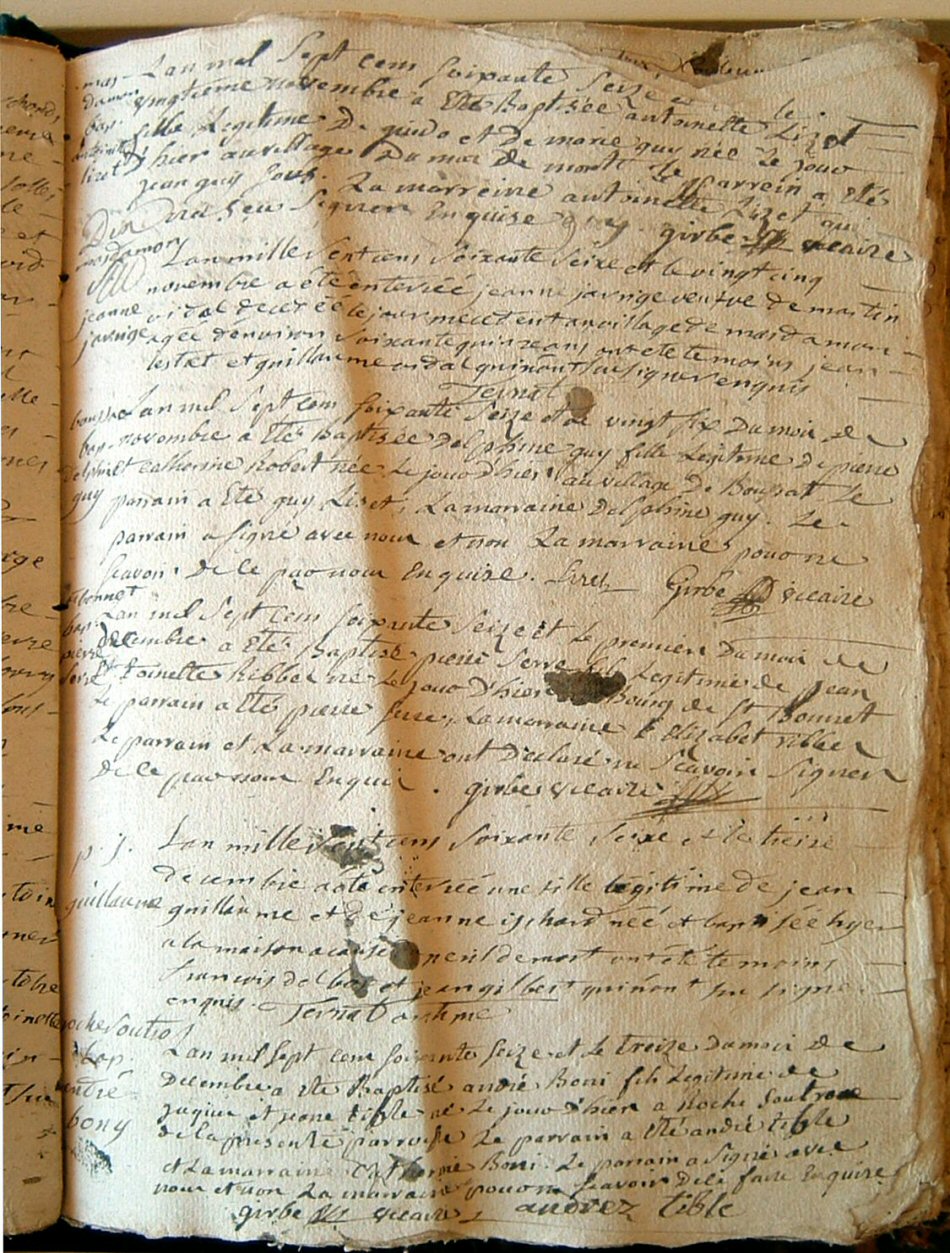 mas
damon
bap.
antoinette
lizet
L'an mil Sept cens Soixante Seize et le
vingtième novembre a Eté Baptisée antoinette Lizet
fille Legitime De guido et de marie guy née Le jour
D'hier au village Du mas de mont Le parrein a été
jean guy Sous. La marreine antoinette Lizet qui
n'a Seu Signer Enquise girbe vicaire
masdamon
jeanne
jarrige
L'an mille Sept cens Soixante Seize et le vingt cinq
novembre a été enterrée jeanne jarrige veuve de martin
vidal decedée le jour precedent au village de masdamon
agée denviron Soixante quinze ans ont été temoins jean
lestat et guillaume vidal qui n'ont Su Signer enquis
Ternat
bap.
guy
L'an mil Sept cens Soixante Seize et le vingt Six Du mois de
novembre a Eté Baptisée delphine guy fille Legitime De pierre
et catherine Robert née Le jour D'hier au village De Boussat Le
parrain a Eté guy Lizet, La marraine Delphine guy. Le
parrain a Signé avec nous et non La marraine pour ne
Scavoir de ce par nous Enquise. Lizet Girbe vicaire
St bonnet
bap.
pierre
Serre
L'an mil Sept cens Soixante Seize et Le premier Du mois de
Decembre a Eté Baptisé pierre Serre fils Legitime de jean
et toinette Ribbe né Le jour D'hier Bourg de St Bonnet
Le parrain a Eté pierre Serre, La marraine Elizabet Ribbe
Le parrain et La marraine ont Declaré ne Scavoir Signer
De ce par nous Enqui. girbe vicaire
p. j.
guillaume
L'an mille Sept cens Soixante Seize et le treize
decembre a été enterrée une fille légitime de jean
guillaume et de jeanne ischard née et baptisée hyer
a la maison a cause peril de mort ont été temoins
françois delbos et jean gilbert qui n'ont Su signer
enquis. Ternat
roche Soutrot
bap.
andré
bony
L'an mil Sept cens Soixante Seize et Le treize Du mois De
Decembre a Eté Baptisé andré Boni fils Legitime de
juque et jeane tible né Le jour D'hier a Roche Soutrone
de la presente parroisse Le parrain a Eté andré tible
et La marraine Catherine Boni. Le parrain a Signé avec
nous et non La marraine pour ne Scavoir De ce faire Enquise
girbe vicaire andrez tible